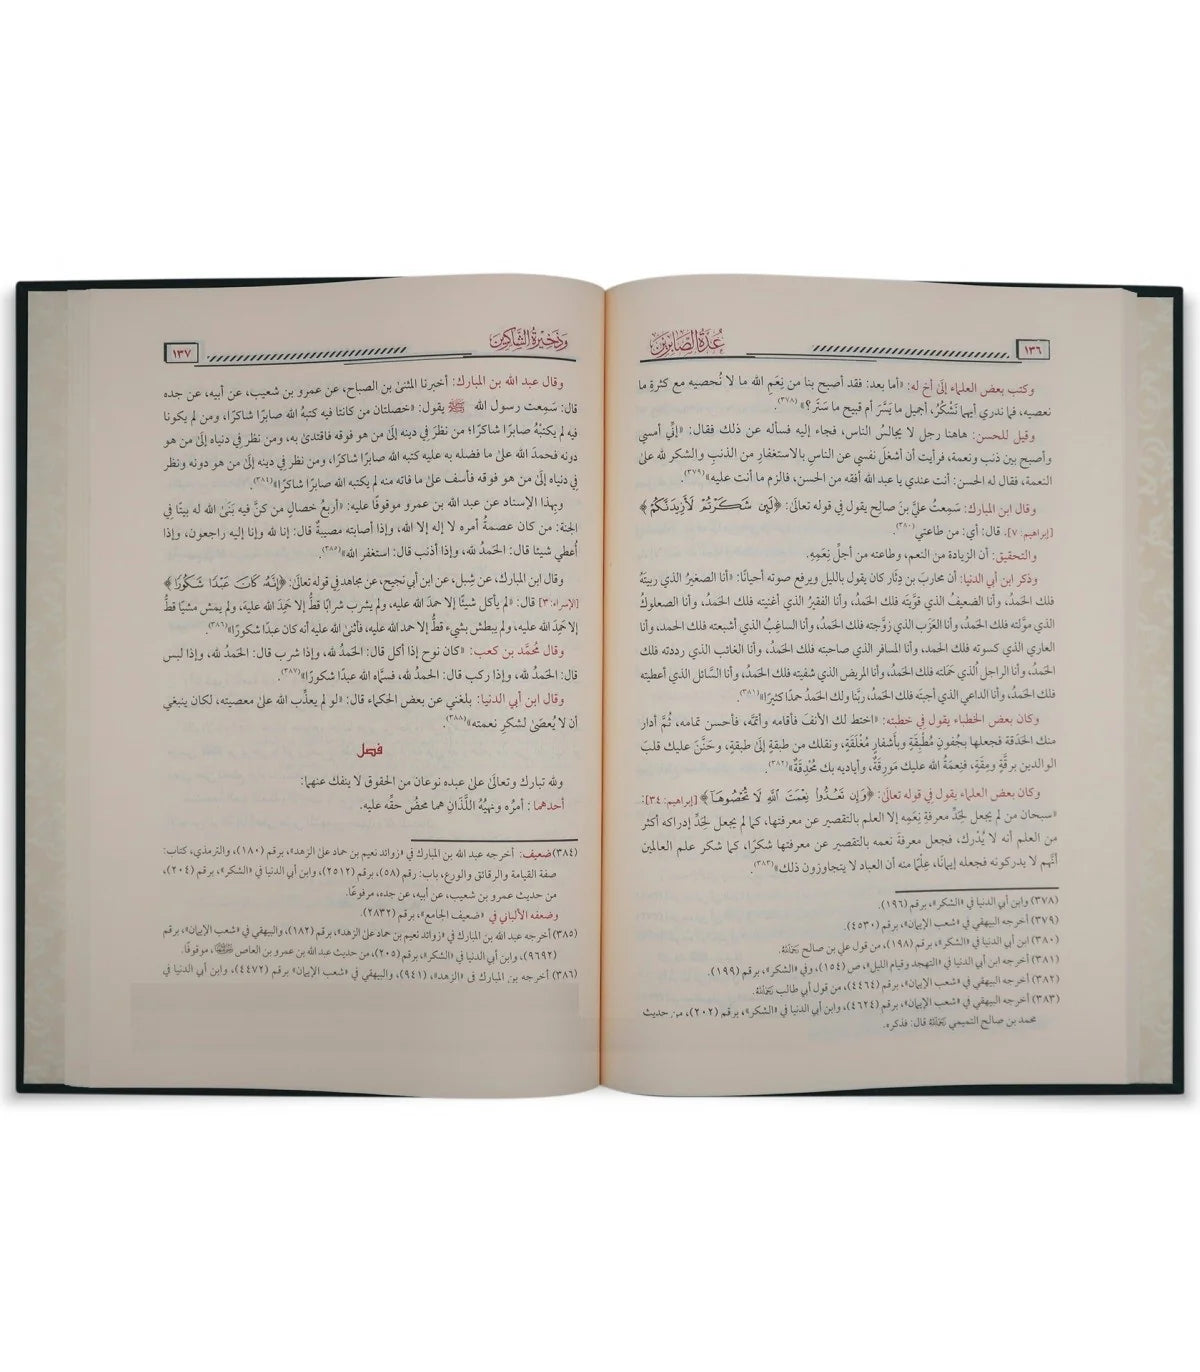 ١٣٦
عُدَّةُ الصَّابِرِينَ
وكتب بعض العلماء إلَى أخ له: «أما بعد: فقد أصبح بنا من نِعَمِ الله ما لا نُحصيه مع كثرةِ ما
نعصيه، فما ندري أيهما نَشْكُرُ، أجميل ما يَسَّرَ أم قبيح ما سَتَر؟»(٣٧٨).
وقيل للحسن: هاهنا رجل لا يجالسُ الناس، فجاء إليه فسأله عن ذلك فقال: «إنِّي أمسي
وأصبح بين ذنب ونعمة، فرأيت أن أشغلَ نفسي عن الناسِ بالاستغفارِ من الذنبِ والشكر لله علَى
النعمة، فقال له الحسن: أنت عندي يا عبد الله أفقه من الحسن، فالزم ما أنت عليه»(٣٧٩).
وقال ابن المبارك: سَمِعتُ عليَّ بنَ صالحِ يقول في قوله تعالَى: ﴿لَئِن شَكَرْتُمْ لَأَزِيدَنَّكُمْ﴾
[إبراهيم: ٧]. قال: أي: من طاعتي(٣٨٠).
والتحقيق: أن الزيادة من النعم، وطاعته من أجلِّ نِعَمِهِ.
وذكر ابن أبي الدنيا: أن محاربَ بن دِثَار كان يقول بالليل ويرفع صوته أحيانًا: «أنا الصغيرُ الذي ربيتَهُ
فلك الحَمدُ، وأنا الضعيفُ الذي قوَّيتَه فلك الحَمدُ، وأنا الفقيرُ الذي أغنيته فلك الحَمدُ، وأنا الصعلوكُ
الذي موَّلته فلك الحَمدُ، وأنا العَزَب الذي زوَّجته فلك الحَمدُ، وأنا الساغِبُ الذي أشبعته فلك الحمد، وأنا
العاري الذي كسوته فلك الحمد، وأنا المسافر الذي صاحبته فلك الحَمدُ، وأنا الغائب الذي رددته فلك
الحَمدُ، وأنا الراجل الُذي حَمَلته فلك الحَمدُ، وأنا المريض الذي شفيته فلك الحَمدُ، وأنا السَّائل الذي أعطيته
فلك الحَمدُ، وأنا الداعي الذي أجبتَه فلك الحَمدُ، ربَّنا ولك الحَمدُ حمدًا كثيرًا»(٣٨١).
وكان بعض الخطباء يقول في خطبته: «اختط لك الأنفَ فأقامه وأتمَّه، فأحسن تمامه، ثُمَّ أدار
منك الحَدَقة فجعلها بِجُفونٍ مُطْبِقَةٍ وبأَشفارٍ مُعْلَقَةٍ، ونقلك من طبقةٍ إلَى طبقةٍ، وحَنَّنَ عليك قلبَ
الوالدين برِقَّةٍ ومِقَةٍ، فنِعمَةُ الله عليك مَورِقَةٌ، وأياديه بك مُحْدِقَةٌ»(٣٨٢).
وكان بعض العلماء يقول في قوله تعالَى: ﴿وَإِن تَعُدُّوا نِعْمَتَ اللَّهِ لَا تُحْصُوهَا﴾ [إبراهيم: ٣٤]:
«سبحان من لم يجعل لِحَدِّ معرفةِ نِعَمِهِ إلا العلم بالتقصير عن معرفتها، كما لم يجعل لِحَدِّ إدراكه أكثر
من العلم أنه لا يُدْرك، فجعل معرفةَ نعمه بالتقصير عن معرفتها شكرًا، كما شكر علم العالمين
أنَّهم لا يدركونه فجعله إيمانًا، عِلْمًا منه أن العباد لا يتجاوزون ذلك»(٣٨٣).
(٣٧٨) وابن أبي الدنيا في «الشكر»، برقم (١٩٦).
(٣٧٩) أخرجه البيهقي في «شعب الإيمان»، برقم (٤٥٣٠).
(٣٨٠) ابن أبي الدنيا في «الشكر»، برقم (١٩٨)، من قول علي بن صالح رَحِمَهُ اللَّهُ.
(٣٨١) أخرجه ابن أبي الدنيا في «التهجد وقيام الليل»، ص (١٥٤)، وفي «الشكر»، برقم (١٩٩).
(٣٨٢) أخرجه البيهقي في «شعب الإيمان»، برقم (٤٤٦٤)، من قول أبي طالب رَحِمَهُ اللَّهُ.
(٣٨٣) أخرجه البيهقي في «شعب الإيمان»، برقم (٤٦٢٤)، وابن أبي الدنيا في «الشكر»، برقم (٢٠٢)، من حديث
محمد بن صالح التميمي رَحِمَهُ اللَّهُ قال: فذكره.
وَذَخِيرَةُ الشَّاكِرِينَ
١٣٧
وقال عبد الله بن المبارك: أخبرنا المثنَى بن الصباح، عن عمرو بن شعيب، عن أبيه، عن جده
قال: سَمِعت رسول الله ﷺ يقول: «خصلتان من كانتا فيه كتبهُ الله صابرًا شاكرًا، ومن لم يكونا
فيه لم يكتبْهُ صابرًا شاكرًا؛ من نظرَ في دينه إلَى من هو فوقه فاقتدَى به، ومن نظر في دنياه إلَى من هو
دونه فحمدَ الله علَى ما فضله به عليه كتبه الله صابرًا شاكرًا، ومن نظر في دينه إلَى من هو دونه ونظر
في دنياه إلَى من هو فوقه فأسف علَى ما فاته منه لم يكتبه الله صابرًا شاكرًا»(٣٨٤).
وبِهذا الإسناد عن عبد الله بن عمرو موقوفًا عليه: «أربعُ خصالٍ من كنَّ فيه بَنَى الله له بيتًا في
الجنة: من كان عصمةُ أمره لا إله إلا الله، وإذا أصابته مصيبةٌ قال: إنا لله وإنا إليه راجعون، وإذا
أُعطي شيئًا قال: الحَمدُ لله، وإذا أذنب قال: استغفر الله»(٣٨٥).
وقال ابن المبارك، عن شِبل، عن ابن أبي نجيح، عن مجاهد في قوله تعالَى: ﴿إِنَّهُ كَانَ عَبْدًا شَكُورًا﴾
[الإسراء: ٣] قال: «لم يأكل شيئًا إلا حمدَ الله عليه، ولم يشرب شرابًا قطُّ إلا حَمِدَ الله عليه، ولم يمش مشيًا قطُّ
إلا حَمِدَ الله عليه، ولم يبطش بشيء قطُّ إلا حمد الله عليه، فأثنَى الله عليه أنه كان عبدًا شكورًا»(٣٨٦).
وقال مُحمَّد بن كعب: «كان نوح إذا أكل قال: الحَمدُ لله، وإذا شرب قال: الحَمدُ لله، وإذا لبس
قال: الحَمدُ لله، وإذا ركب قال: الحمدُ لله، فسمَّاه الله عبدًا شكورًا»(٣٨٧).
وقال ابن أبي الدنيا: بلغني عن بعض الحكماء قال: «لو لم يعذِّب الله علَى معصيته، لكان ينبغي
أن لا يُعصَى لشكرِ نعمته»(٣٨٨).
فصل
ولله تبارك وتعالَى علَى عبده نوعان من الحقوق لا ينفك عنهما:
أحدهما: أمرُه ونهيُهُ اللَّذَانِ هما محضُ حقِّه عليه.
(٣٨٤) ضعيف: أخرجه عبد الله بن المبارك في «زوائد نعيم بن حماد علَى الزهد»، برقم (١٨٠)، والترمذي، كتاب:
صفة القيامة والرقائق والورع، باب: رقم (٥٨)، برقم (٢٥١٢)، وابن أبي الدنيا في «الشكر»، برقم (٢٠٤)،
من حديث عمرو بن شعيب، عن أبيه، عن جده، مرفوعًا.
وضعفه الألباني في «ضعيف الجامع»، برقم (٢٨٣٢).
(٣٨٥) أخرجه عبد الله بن المبارك في «زوائد نعيم بن حماد علَى الزهد»، برقم (١٨٢)، والبيهقي في «شعب الإيمان»، برقم
(٩٦٩٢)، وابن أبي الدنيا في «الشكر»، برقم (٢٠٥)، من حديث عبد الله بن عمرو بن العاص، موقوفًا.
(٣٨٦) أخرجه بن المبارك في «الزهد»، (٩٤١)، والبيهقي في «شعب الإيمان»، برقم (٤٤٧٢)، وابن أبي الدنيا في